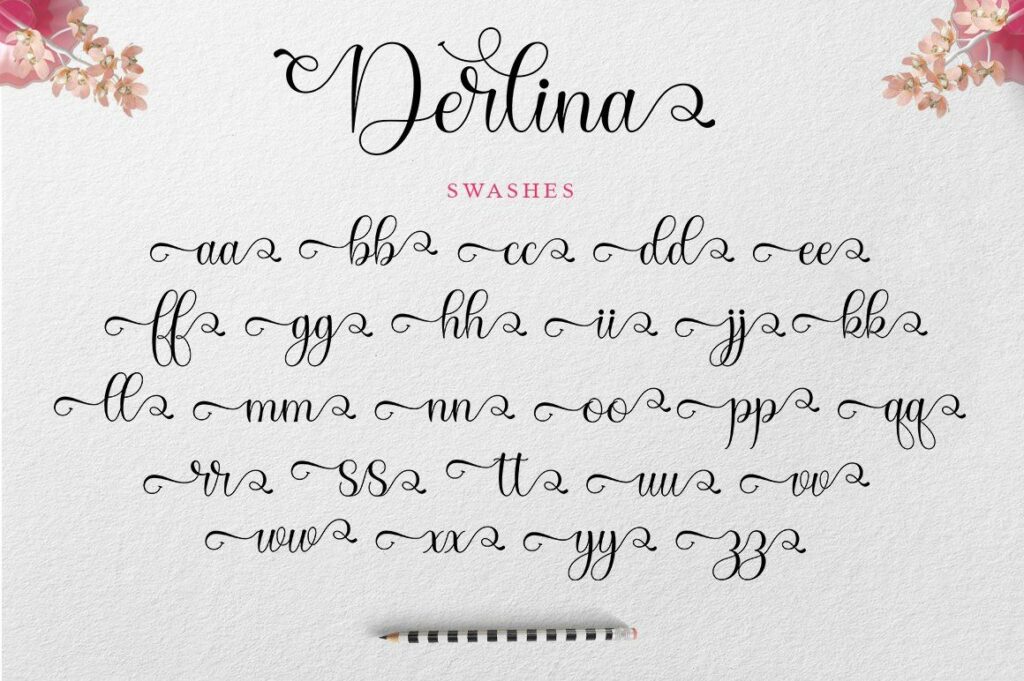 Derlina
SWASHES
aa bb cc dd ee
ff gg hh ii jj kk
ll mm nn oo pp qq
rr ss tt uu vv
ww xx yy zz